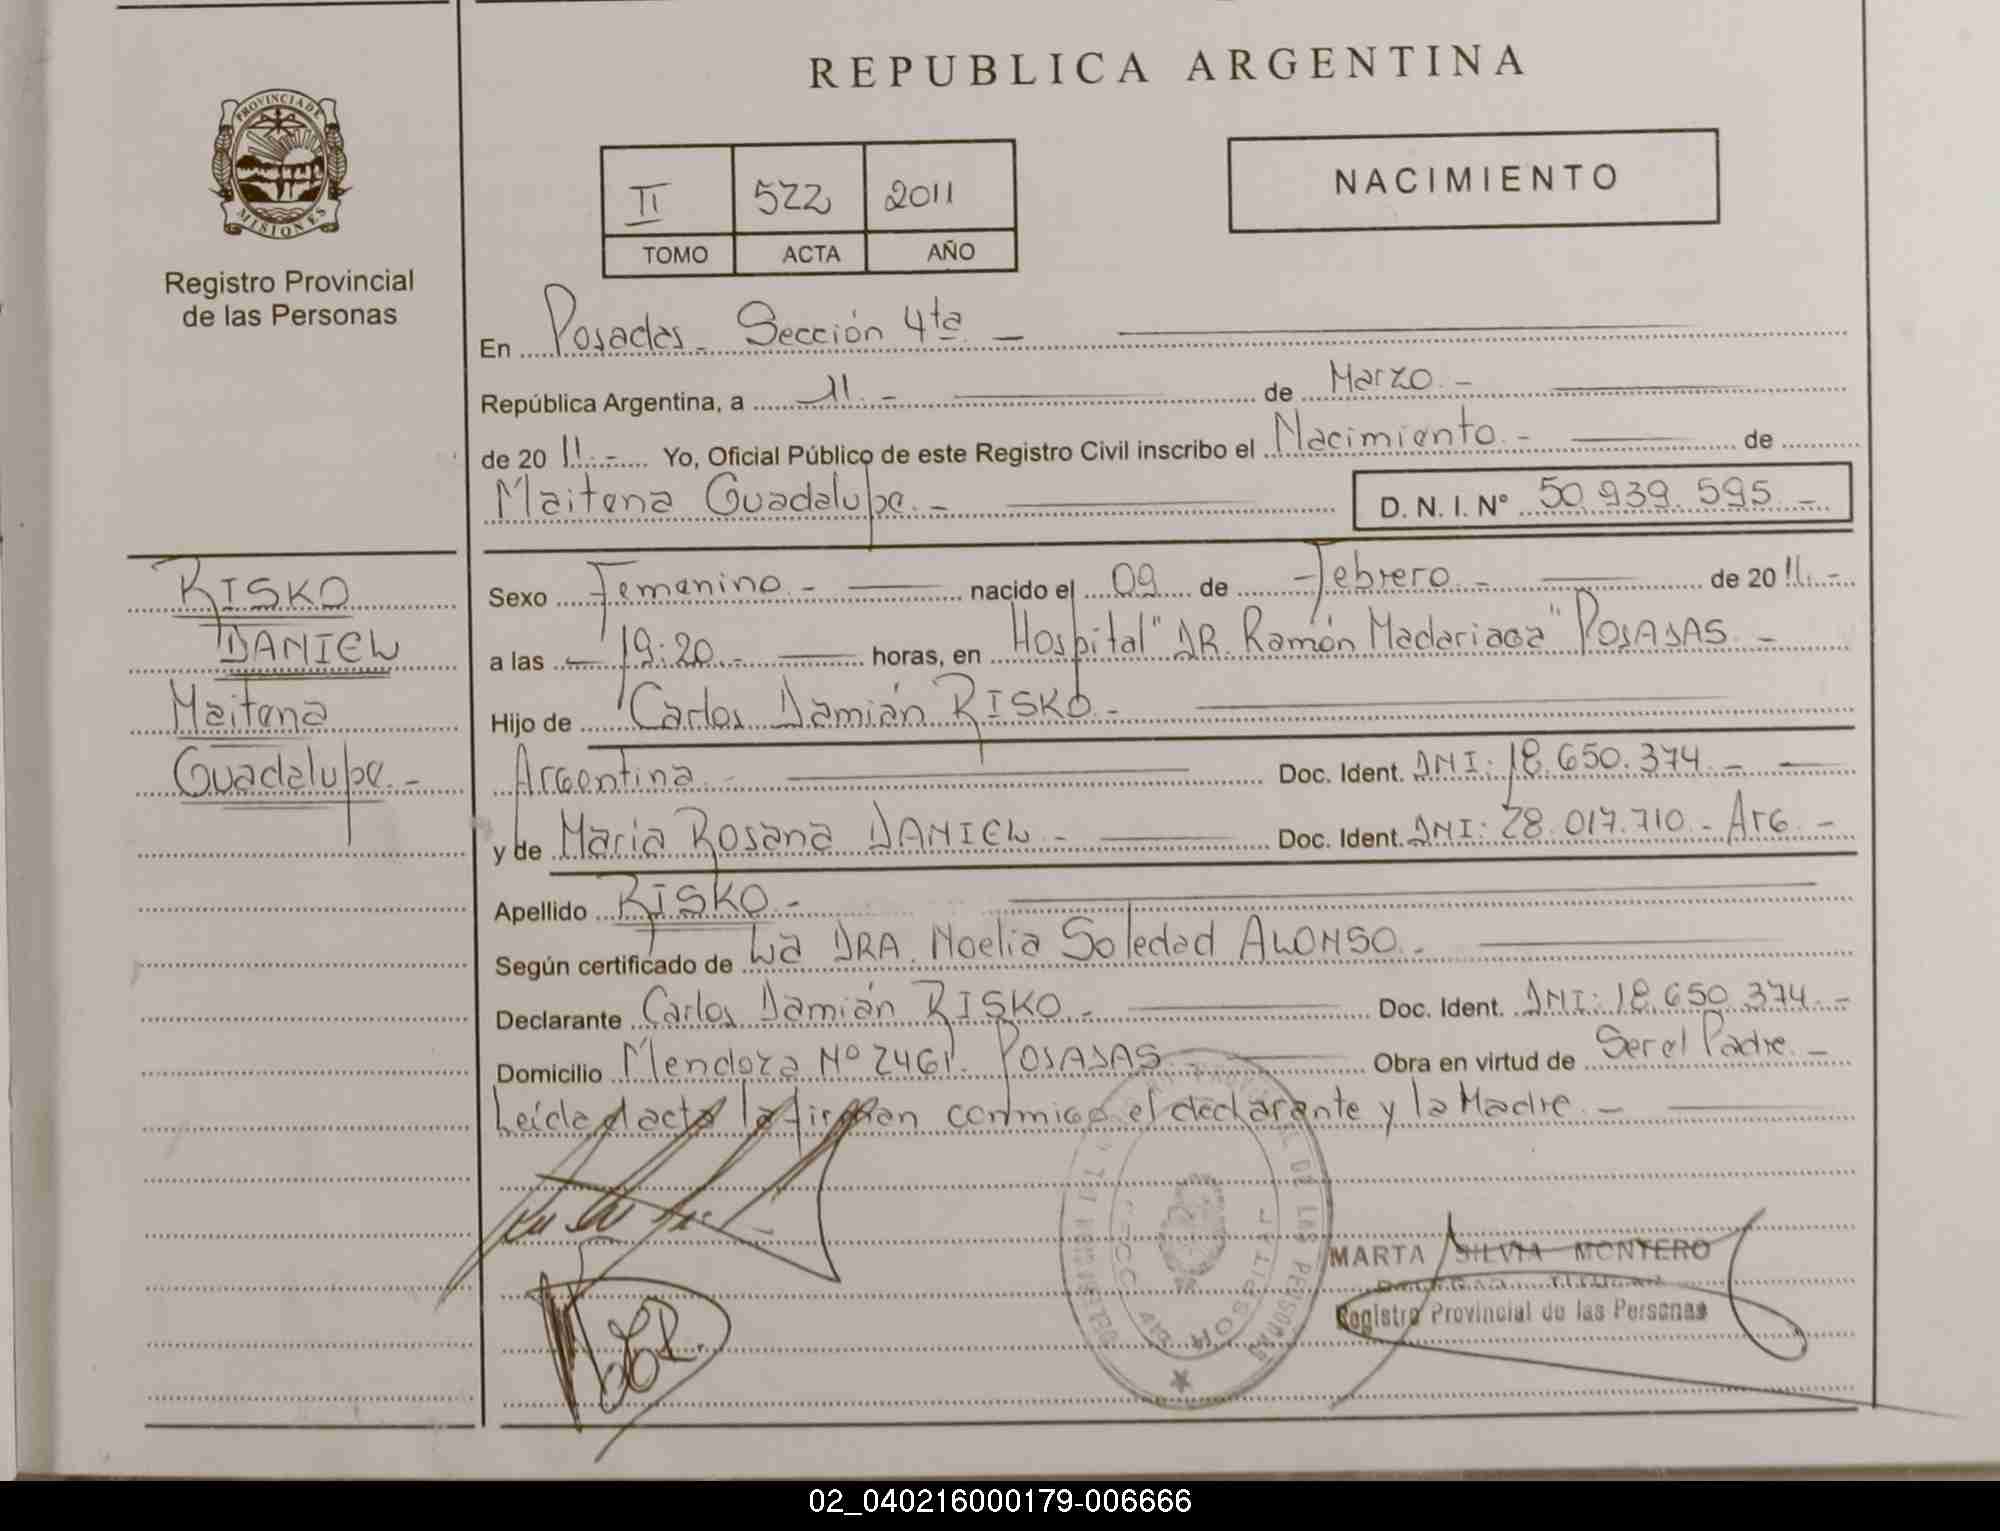 PROVINCIA DE
MISIONES
Registro Provincial
de las Personas
REPUBLICA ARGENTINA
II 522 2011
TOMO ACTA AÑO
NACIMIENTO
En Posadas - Sección 4ta. -
República Argentina, a 11. - de Marzo. -
de 20 11. - Yo, Oficial Público de este Registro Civil inscribo el Nacimiento. - de
Maitena Guadalupe. - D. N. I. Nº 50.939.595. -
RISKO
DANIEL
Maitena
Guadalupe. -
Sexo Femenino. - nacido el 09 de Febrero. - de 20 11. -
a las 19:20. - horas, en Hospital "DR. Ramón Madariaga" POSADAS. -
Hijo de Carlos Damián RISKO. -
Argentina. - Doc. Ident. DNI: 18.650.374. -
y de Maria Rosana DANIEL. - Doc. Ident. DNI: 28.017.710. - ARG. -
Apellido RISKO. -
Según certificado de La DRA. Noelia Soledad ALONSO. -
Declarante Carlos Damián RISKO. - Doc. Ident. DNI: 18.650.374. -
Domicilio Mendoza Nº 2461. POSADAS. - Obra en virtud de Ser el Padre. -
Leída el acta la firman conmigo el declarante y la Madre. -
MARTA SILVIA MONTERO
Registro Provincial de las Personas
02_040216000179-006666